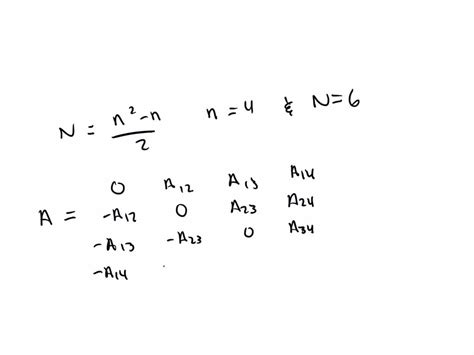 N = n² - n / 2   n = 4 & N = 6
0 A₁₂ A₁₃ A₁₄
A = -A₁₂ 0 A₂₃ A₂₄
-A₁₃ -A₂₃ 0 A₃₄
-A₁₄